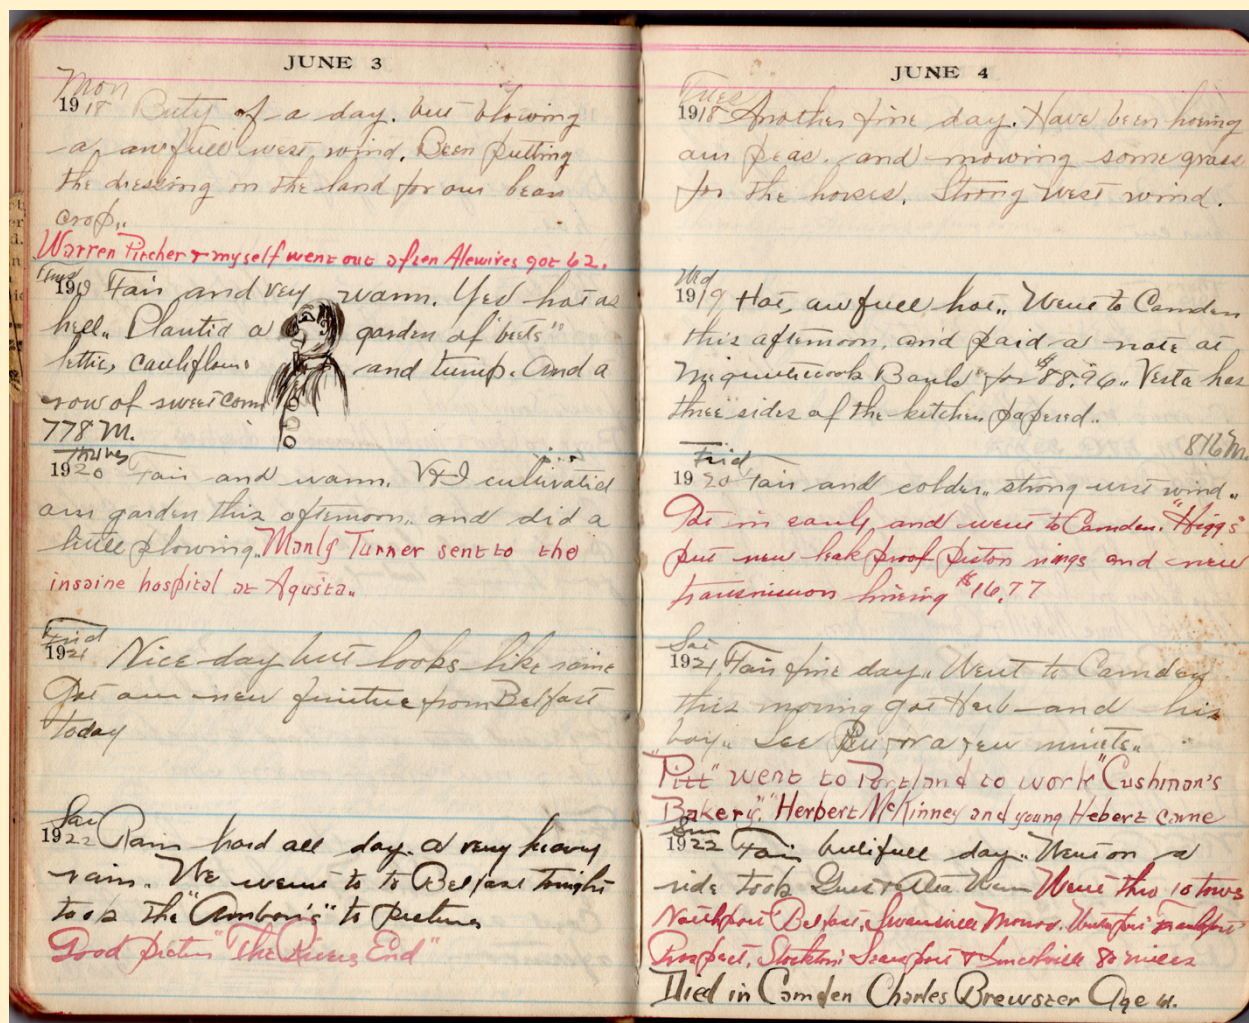 JUNE 3
Mon
1918 Buty of a day. but blowing
a awfull west wind. Been putting
the dressing on the land for our bean
crop..
Warren Pitcher & myself went out after Alewives got 62.
Tues
1919 Fair and very warm. Yes hot as
hell.. Plantid a garden of beets"
lettis, cauliflour and turnip. And a
row of sweet corn
778 M.
Thurs
1920 Fair and warm. V & I cultivatid
our garden this afternoon.. and did a
little plowing. Manly Turner sent to the
insaine hospital at Agusta..
Frid
1921 Nice day but looks like raine
Got our new funiture from Belfast
today
Sat
1922 Rain hard all day. a very heavy
rain. We went to to Belfast tonight
took the "Ambon's" to pictures
Good picture "The Rivers End"
JUNE 4
Tues
1918 Another fine day. Have been hoeing
our peas. and mowing some grass
for the horses. Strong West wind.
Wed
1919 Hot, awfull hot.. Went to Camden
this afternoon. and paid a note at
Megunticook Bank for $88.96.. Vesta has
three sides of the kitchen papered..
816 M.
Frid
1920 Fair and colder.. strong west wind..
Got in early and went to Camden. "Higgs"
put new leak proof piston rings and new
transmission lining $16.77
Sat
1921 Fair fine day.. Went to Camden
this morning got Herb and his
boy.. See for a few minets..
"Pitt" went to Portland to work "Cushman's
Bakery". "Herbert McKinney and young Hebert came
Sun
1922 Fair butifull day.. Went on a
ride took Went thro 10 towns
Northport Belfast, Swanville Monroe. Winterport Frankfort
Prospect, Stockton Searsport & Lincolnville 80 miles
Died in Camden Charles Brewster Age 61.